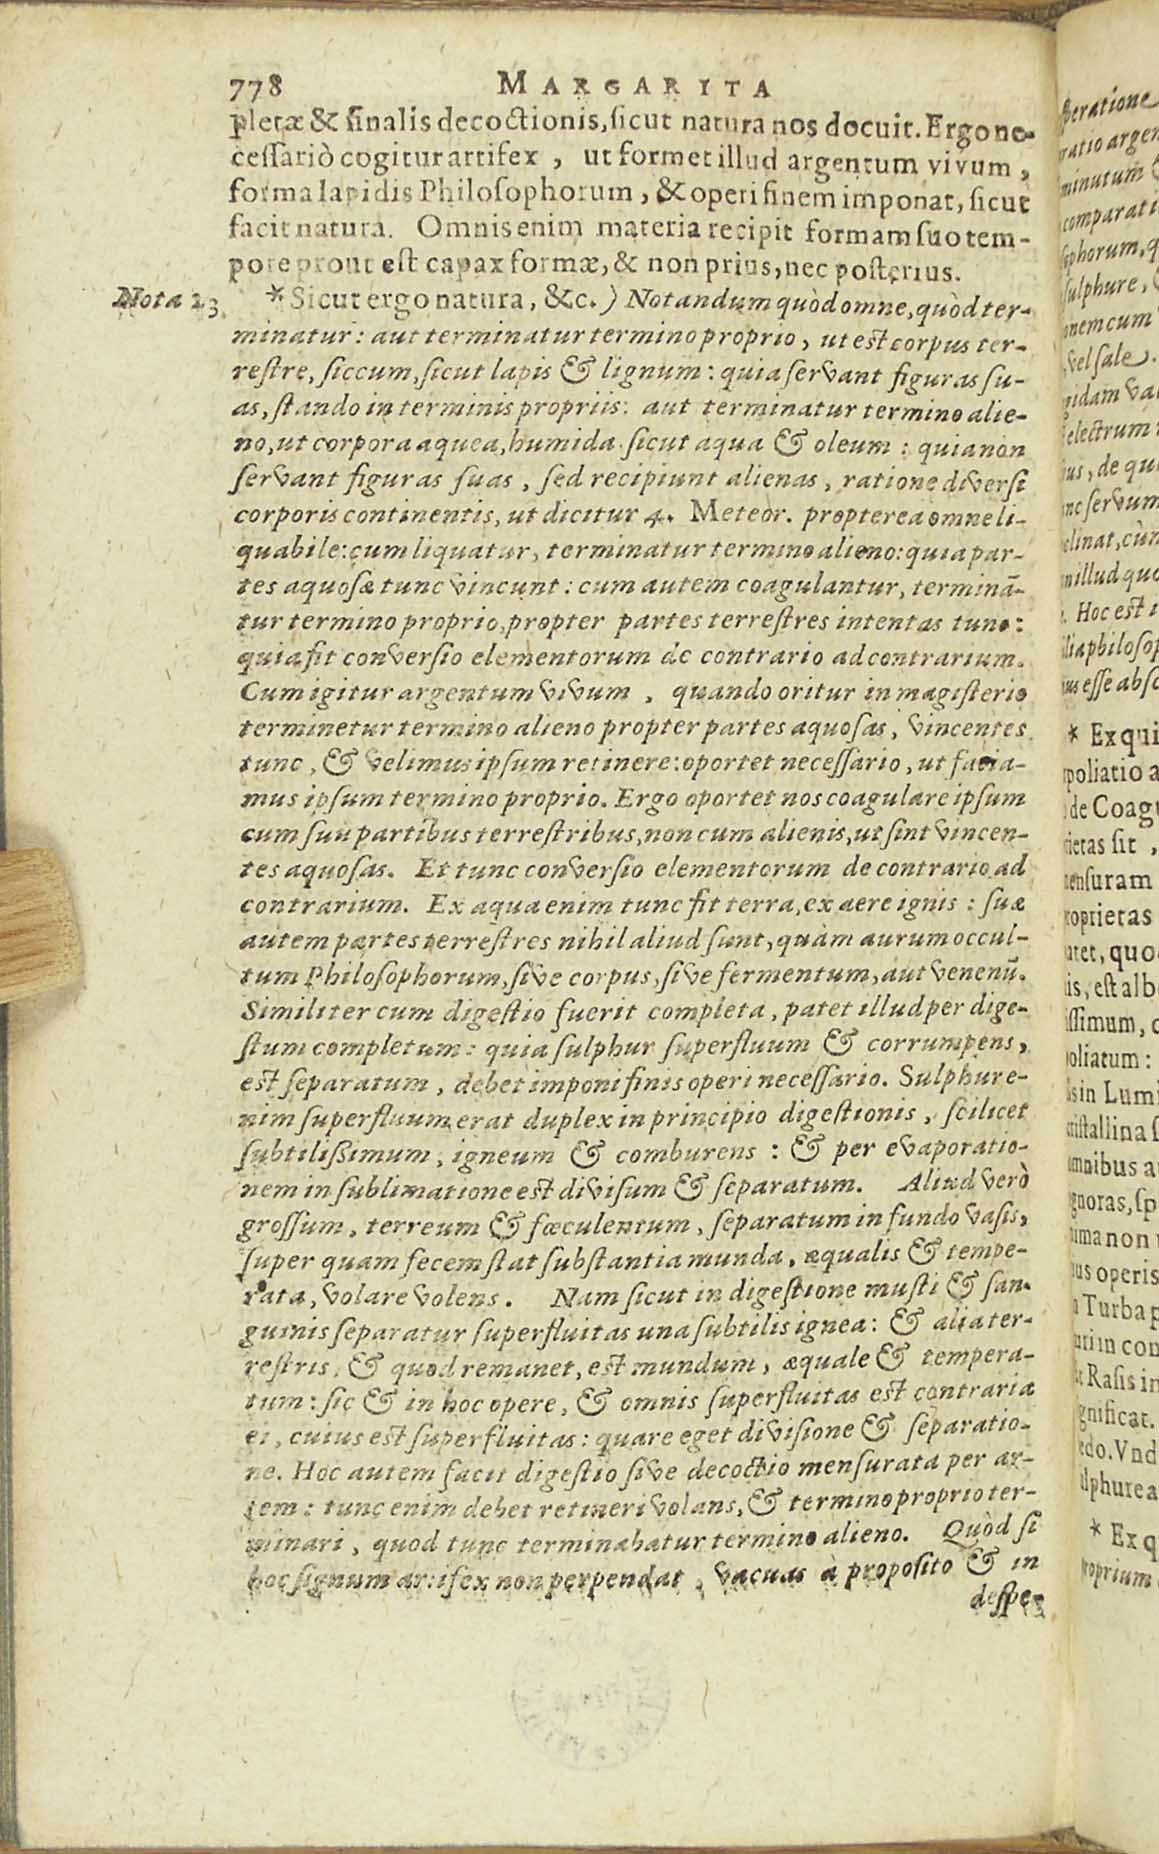 778 MARGARITA
pletæ & finalis decoctionis, sicut natura nos docuit. Ergo ne-
cessariò cogitur artifex, ut formet illud argentum vivum,
forma lapidis Philosophorum, & operi finem imponat, sicut
facit natura. Omnis enim materia recipit formam suo tem-
pore prout est capax formæ, & non prius, nec posterius.
Nota 23. * Sicut ergo natura, &c.) Notandum quòd omne, quòd ter-
minatur: aut terminatur termino proprio, ut est corpus ter-
restre, siccum, sicut lapis & lignum: quia servant figuras su-
as, stando in terminis propriis: aut terminatur termino alie-
no, ut corpora aquea, humida sicut aqua & oleum: quia non
servant figuras suas, sed recipiunt alienas, ratione diversi
corporis continentis, ut dicitur 4. Meteor. propterea omne li-
quabile: cum liquatur, terminatur termino alieno: quia par-
tes aquosæ tunc vincunt: cum autem coagulantur, terminā-
tur termino proprio, propter partes terrestres intentas tunc:
quia fit conversio elementorum de contrario ad contrarium.
Cum igitur argentum vivum, quando oritur in magisterio
terminetur termino alieno propter partes aquosas, vincentes
tunc, & velimus ipsum retinere: oportet necessario, ut facia-
mus ipsum termino proprio. Ergo oportet nos coagulare ipsum
cum suis partibus terrestribus, non cum alienis, ut sint vincen-
tes aquosas. Et tunc conversio elementorum de contrario ad
contrarium. Ex aqua enim tunc fit terra, ex aere ignis: suæ
autem partes terrestres nihil aliud sunt, quàm aurum occul-
tum Philosophorum, sive corpus, sive fermentum, aut venenū.
Similiter cum digestio fuerit completa, patet illud per dige-
stum completum: quia sulphur superfluum & corrumpens,
est separatum, debet imponi finis operi necessario. Sulphur e-
nim superfluum erat duplex in principio digestionis, scilicet
subtilissimum, igneum & comburens: & per evaporatio-
nem in sublimatione est divisum & separatum. Aliud verò
grossum, terreum & fœculentum, separatum in fundo vasis,
super quam fecem stat substantia munda, æqualis & tempe-
rata, volare volens. Nam sicut in digestione musti & san-
guinis separatur superfluitas una subtilis ignea: & alia ter-
restris, & quod remanet, est mundum, æquale & tempera-
tum: sic & in hoc opere, & omnis superfluitas est contraria
ei, cuius est superfluitas: quare eget divisione & separatio-
ne. Hoc autem facit digestio sive decoctio mensurata per ar-
tem: tunc enim debet retineri volans, & termino proprio ter-
minari, quod tunc terminabatur termino alieno. Quòd si
hoc signum artifex non perpendat, vacuas à proposito & in
despe-